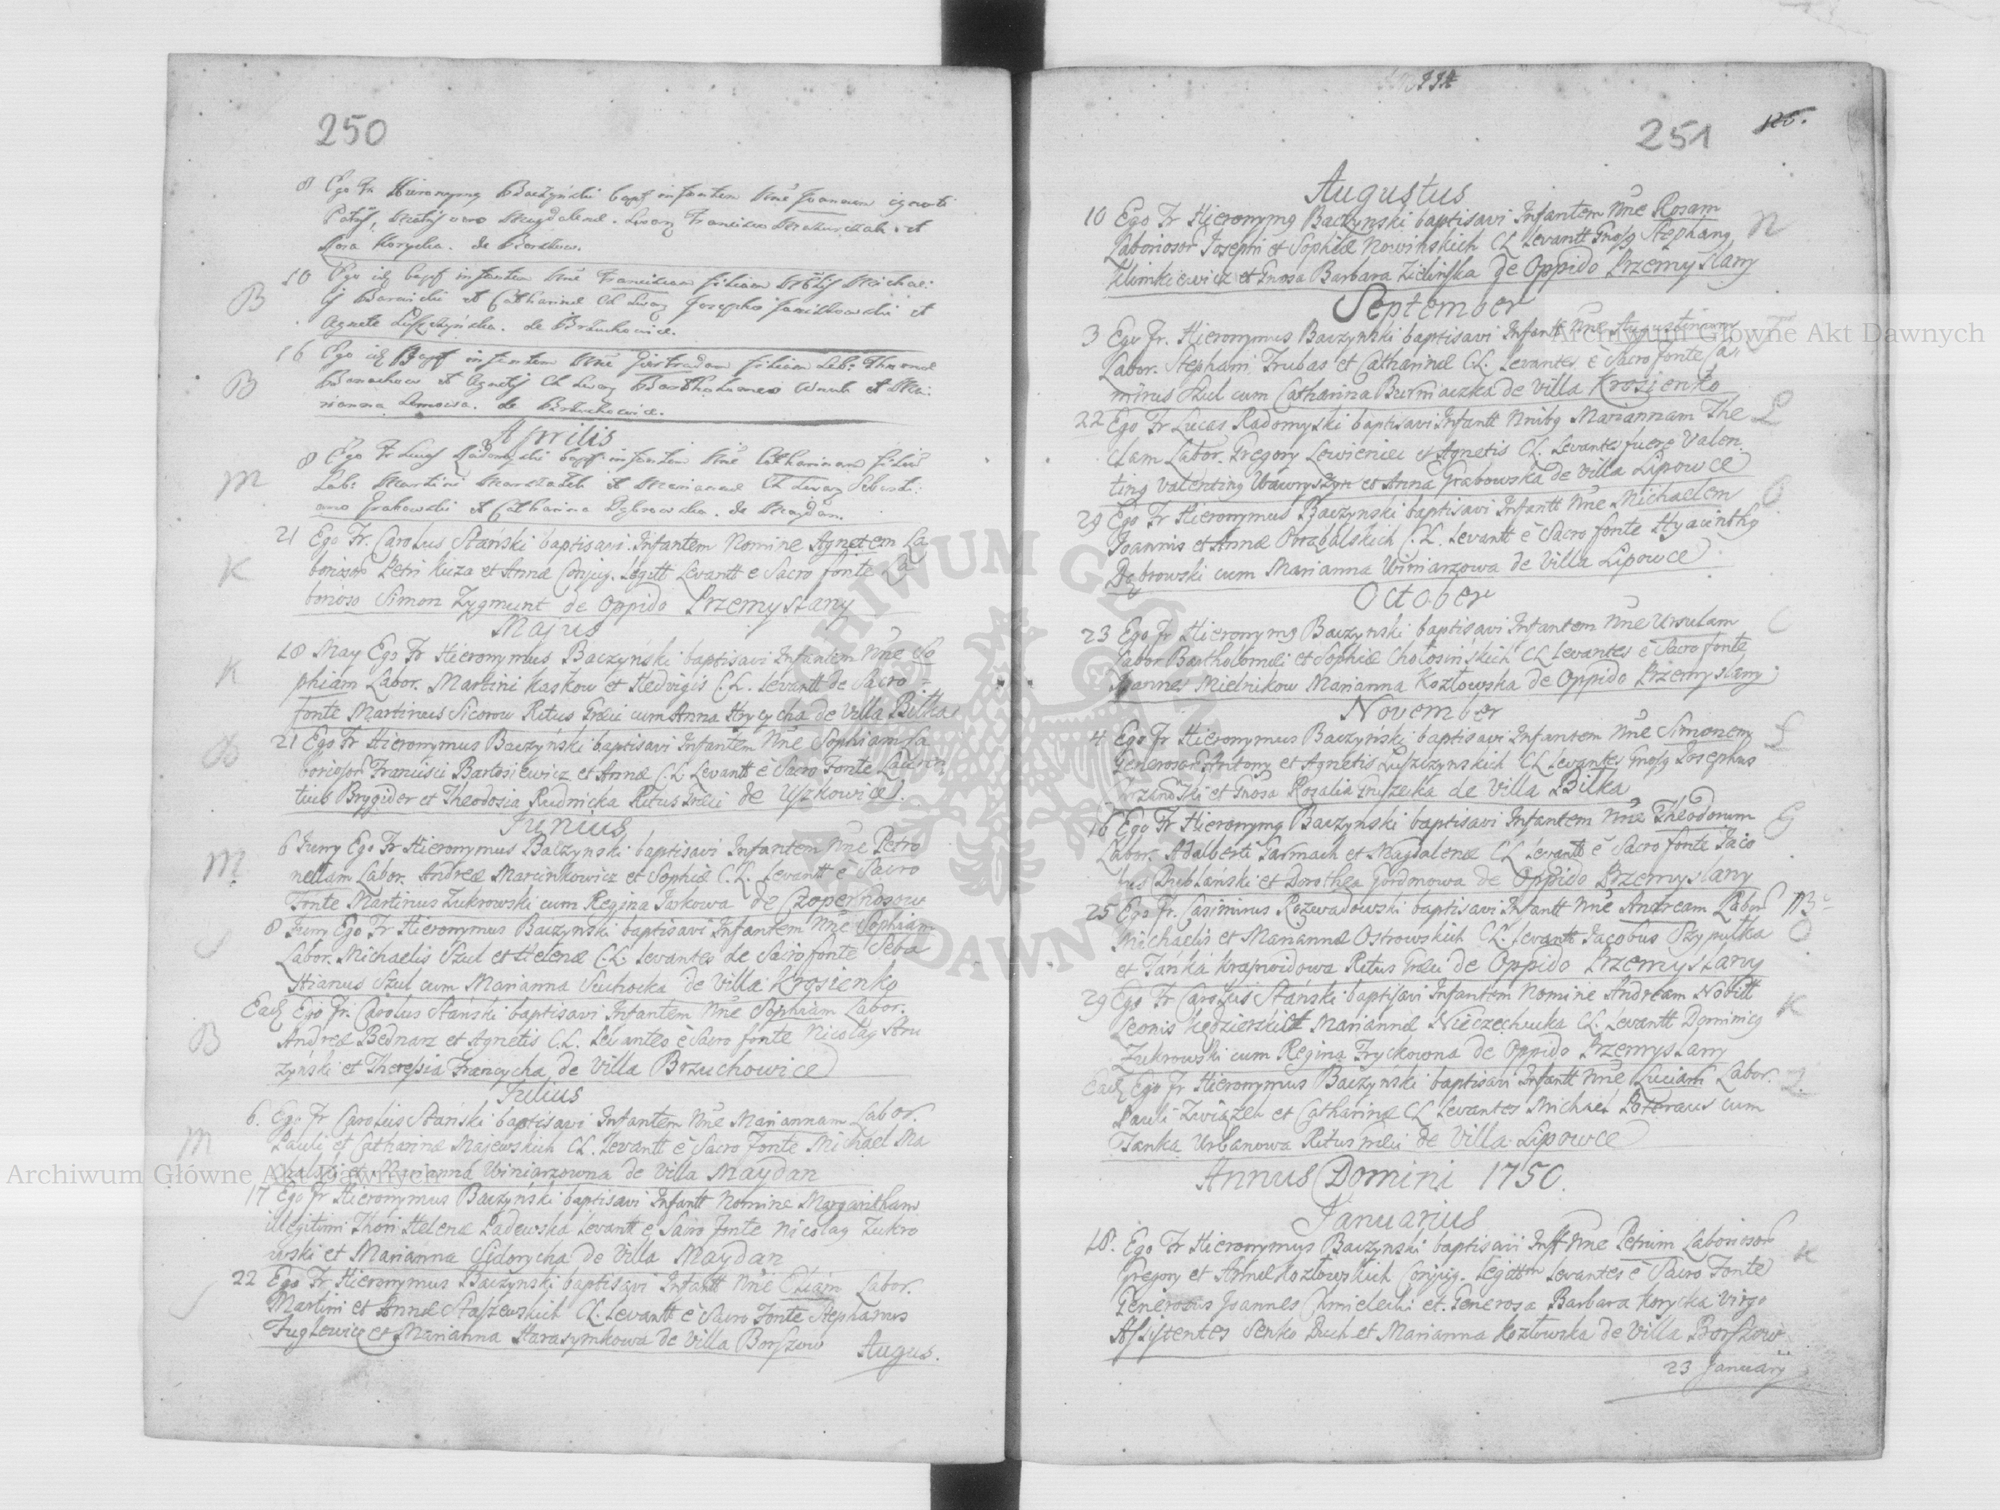 250
8 Ego Fr Hieronymg Baczyński bapt infantem Nne Joannem ignoti
Patris, Matris vero Magdalenæ. Levarg Franciscus et
Rosa Korycka. de Borszow.
10 Ego idg bapt infantem Nne Franciscam filiam
B
ij Barnicki et Catharinæ CL Levarg Josepho Janiszowski et
Agnete Luszczyńska. de Brzuchowice.
16 Ego idg Bapt infantem Nne Gertrudam filiam Lab: Thomæ
B
Banachow et Agnetis CL Levarg Bartholomeo et Ma:
rianna. de Brzuchowice.
Aprilis
8 Ego Fr Lucas Radomyski bapt infantem Nne Catharinam filiā
M
Lab: Martini Marszałek et Mariannæ CL Levarg Sebasti:
ano Grabowski et Catharina Dąbrowska. de Maydan.
21 Ego Fr. Carolus Stański baptisavi Infantem Nomine Agnetem La
K
boriosor Petri Kuza et Annæ Conjug. Legitt Levantt e Sacro fonte La
borioso Simon Zygmunt de Oppido Przemyslany
Majus
18 May Ego Fr Hieronymus Baczyński baptisavi Infantem Nne So
K
phiam Labor. Martini Kaskow et Hedvigis C.L. Levantt de Sacro
fonte Martinus Sicorow Ritus Græci cum Anna Hrycycha de Villa Bitka
21 Ego Fr Hieronymus Baczyński baptisavi Infantem Nne Sophiam La
B
boriosor Francisci Bartosiewicz et Annæ C.L Levantt è Sacro Fonte Lauren
tius Brygider et Theodosia Rudnicka Ritus Græci de Uszkowice.
Junius
6 Juny Ego Fr Hieronymus Baczynski baptisavi Infantem Nne Petro
M
nellam Labor. Andreæ Marcinkowicz et Sophiæ C.L. Levantt è Sacro
Fonte Martinus Zukrowski cum Regina Jaskowa de Czopernosow
8 Juny Ego Fr Hieronymus Baczynski baptisavi Infantem Nne Sophiam
Labor. Michaelis Szul et Helenæ C.L. Levantes de Sacro fonte Seba
stianus Szul cum Marianna Suchocka de Villa Krosienko
Eadē Ego Fr. Carolus Stański baptisavi Infantem Nne Sophiam Labor.
B
Andreæ Bednarz et Agnetis C.L. Levantes è Sacro fonte Nicolag Stru
zyński et Theresia Francycha de Villa Brzuchowice
Julius
6. Ego Fr Carolus Stański baptisavi Infantem Nne Mariannam Labor.
M
Pauli et Catharinæ Majewskich CL. Levantt è Sacro Fonte Michael Ma
et Marianna Winiarzowna de Villa Maydan
17 Ego Fr Hieronymus Baczyński baptisavi Infantt Nomine Margaritham
illegitimi Thori Helenæ Padewska Levantt è Sacro fonte Nicolag Zukro
wski et Marianna Sidorycha de Villa Maydan
22 Ego Fr Hieronymus Baczynski baptisavi Infantt Nne Eliam Labor.
Martini et Annæ Staszewskich CL. Levantt è Sacro Fonte Stephanus
Fuglewicz et Marianna Harasymkowa de Villa Borszow
Augus.
251
126.
Augustus
10 Ego Fr Hieronymg Baczynski baptisavi Infantem Nne Rosam
N
Laboriosor Josephi et Sophiæ Nowinskich CL Levantt Gnosg Stephang
Klimkiewicz et Gnosa Barbara Zielińska de Oppido Przemyslany
September
3 Ego Fr. Hieronymus Baczynski baptisavi Infantt Nne Augustinum
Labor. Stephani Trubas et Catharinæ C.L. Levantes è Sacro fonte Ca
mirus Szul cum Catharina Burniaczka de Villa Krosienko
22 Ego Fr Lucas Radomyski baptisavi Infantt Nnibg Mariannam The
L
clam Labor. Gregory Lewieniec et Agnetis CL. Levantes fuere Valen
ting Valenting Wawryszyn et Anna Grabowska de Villa Lipowce
29 Ego Fr Hieronymus Baczynski baptisavi Infantt Nne Michaelem
O
Joannis et Annæ Obrąbalskich C.L. Levantt è Sacro fonte Hyacinthg
Dąbrowski cum Marianna Winiarzowa de Villa Lipowce
October
23 Ego Fr Hieronymg Baczynski baptisavi Infantem Nne Ursulam
C
Labor Bartholomæi et Sophiæ Chołosińskich CL Levantes è Sacro fonte
Joannes Mielnikow Marianna Kozłowska de Oppido Przemyslany
November
4 Ego Fr Hieronymus Baczynski baptisavi Infantem Nne Simonem
L
Generosor Antony et Agnetis Luszczynskich CL Levantes Gnosg Josephus
et Gnosa Rosalia de Villa Bitka
16 Ego Fr Hieronymg Baczynski baptisavi Infantem Nne Theodorum
G
Labor. Adalberti Garmach et Magdalenæ CL Levantt è Sacro fonte Jaco
bus Dublański et Dorothea Gordonowa de Oppido Przemyslany
25 Ego Fr. Casimirus Rozwadowski baptisavi Infantt Nne Andream Labor
O
Michaelis et Mariannæ Ostrowskich CL. Levantt Jacobus Szypulka
et Tańka Krajwidowa Ritus Græci de Oppido Przemyslany
29 Ego Fr Carolus Stański baptisavi Infantem Nomine Andream Nobill
K
Leonis Kędzierskich Mariannæ Nieczechucka CL Levantt Dominicg
Zukrowski cum Regina Fryckowna de Oppido Przemyslany
Eadē Ego Fr Hieronymus Baczynski baptisavi Infantt Nne Luciam Labor.
Z
Pauli Związek et Catharinæ CL Levantes Michael Poteraus cum
Tanka Urbanowa Ritus Græci de Villa Lipowce
Annus Domini 1750.
Januarius
18. Ego Fr Hieronymus Baczynski baptisavi Inft Nne Petrum Laboriosor
K
Gregory et Annæ Kozłowskich Conjug. Legittm Levantes è Sacro Fonte
Generosus Joannes Chmielecki et Generosa Barbara Korycka Virgo
Assistentes Senko Duch et Marianna Kozłowska de Villa Borszow
23 January
Archiwum Główne Akt Dawnych
Archiwum Główne Akt Dawnych
ARCHIWUM GŁÓWNE AKT DAWNYCH